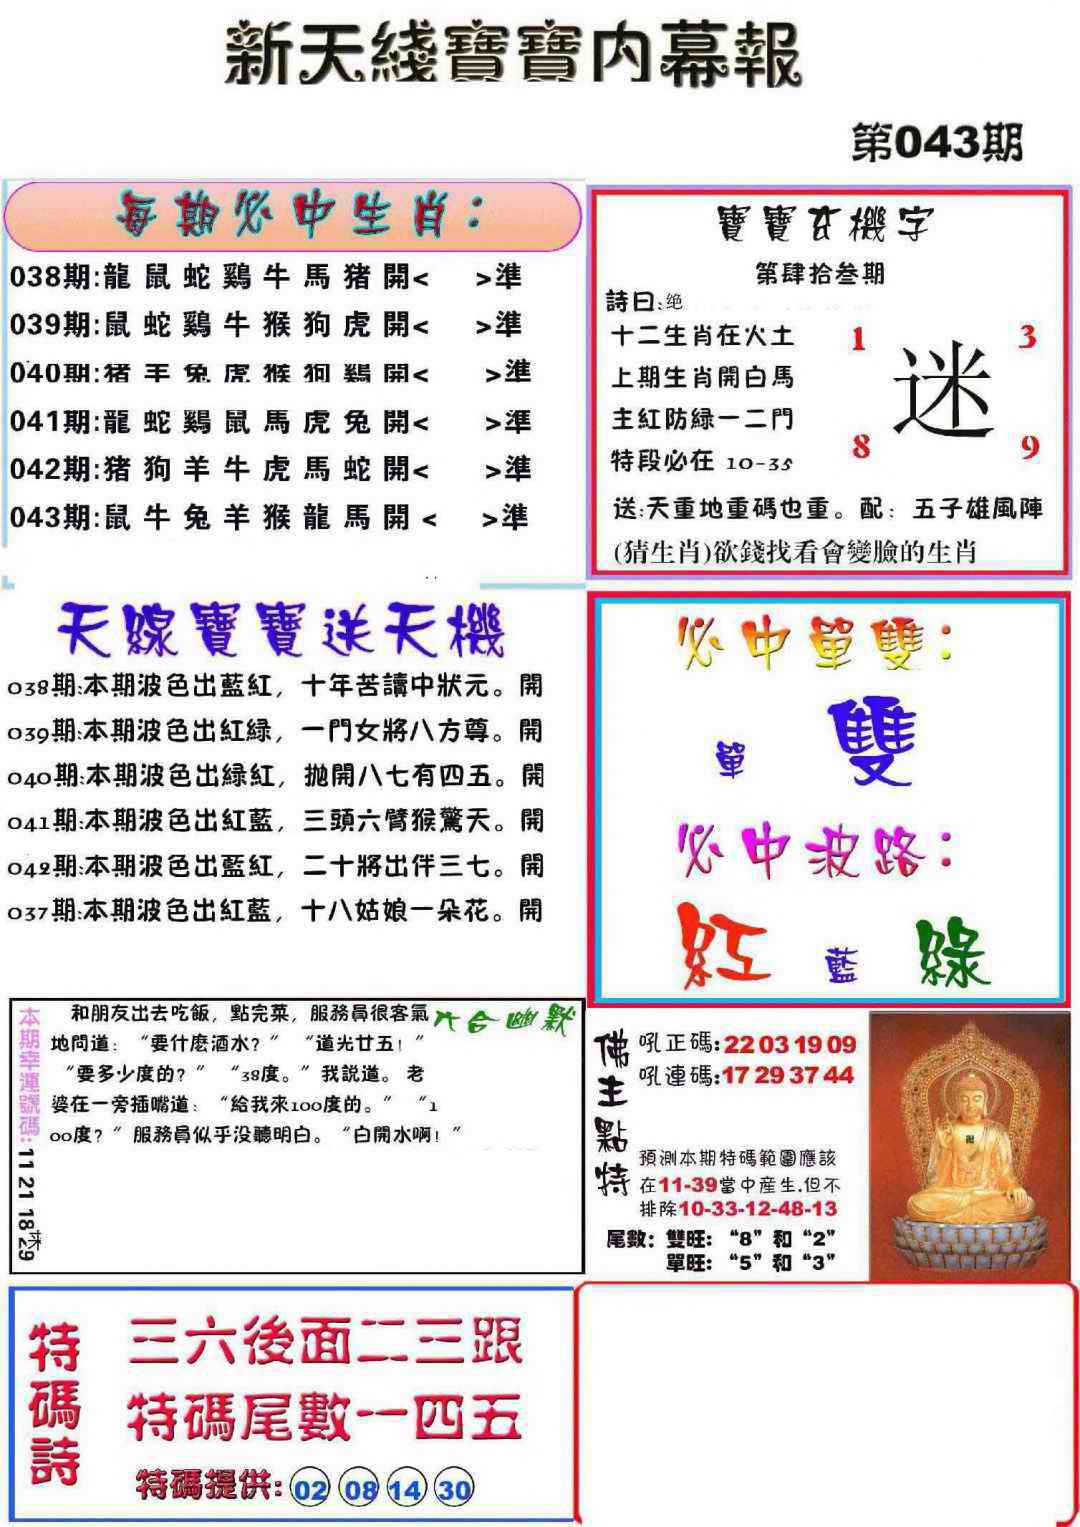 新天綫寶寶内幕報
第043期
每期必中生肖：
038期:龍鼠蛇鷄牛馬猪開< >準
039期:鼠蛇鷄牛猴狗虎開< >準
040期:猪羊兔虎猴狗鷄開< >準
041期:龍蛇鷄鼠馬虎兔開< >準
042期:猪狗羊牛虎馬蛇開< >準
043期:鼠牛兔羊猴龍馬開< >準
寶寶玄機字
第肆拾叁期
詩曰:绝
十二生肖在火土
上期生肖開白馬
主紅防緑一二門
特段必在 10-35
1 3
迷
8 9
送:天重地重碼也重。配：五子雄風陣
(猜生肖)欲錢找看會變臉的生肖
天線寶寶送天機
038期:本期波色出藍紅，十年苦讀中狀元。開
039期:本期波色出紅緑，一門女將八方尊。開
040期:本期波色出緑紅，抛開八七有四五。開
041期:本期波色出紅藍，三頭六臂猴驚天。開
042期:本期波色出藍紅，二十將出伴三七。開
037期:本期波色出紅藍，十八姑娘一朵花。開
必中單雙：
單 雙
必中波路：
紅 藍 緑
本期幸運號碼:11 21 18 29
六合幽默
和朋友出去吃飯，點完菜，服務員很客氣
地問道：“要什麽酒水？” “道光廿五！”
“要多少度的？” “38度。”我説道。老
婆在一旁插嘴道：“給我來100度的。” “1
00度？”服務員似乎没聽明白。“白開水啊！”
佛主點特
吼正碼:22 03 19 09
吼連碼:17 29 37 44
預測本期特碼範圍應該
在11-39當中産生.但不
排除10-33-12-48-13
尾數：雙旺：“8”和“2”
單旺：“5”和“3”
特碼詩
三六後面二三跟
特碼尾數一四五
特碼提供: 02 08 14 30